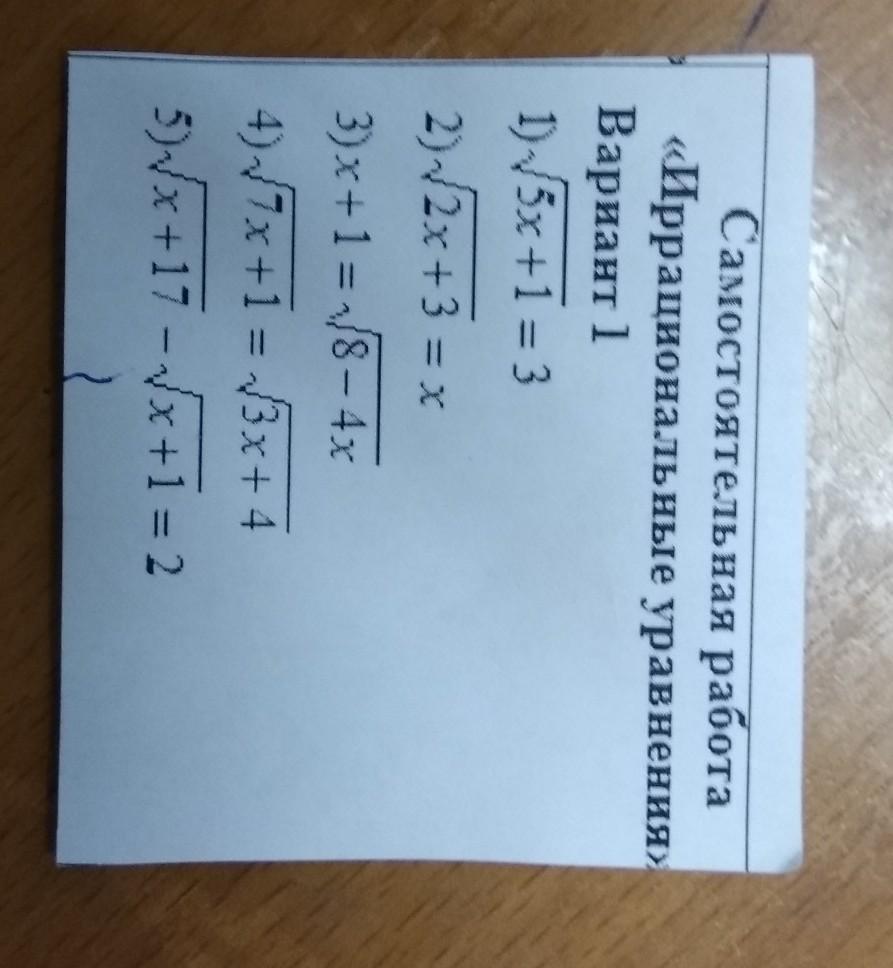 Самостоятельная работа
«Иррациональные уравнения»
Вариант 1
1) √(5x+1) = 3
2) √(2x+3) = x
3) x+1 = √(8−4x)
4) √(7x+1) = √(3x+4)
5) √(x+17) − √(x+1) = 2